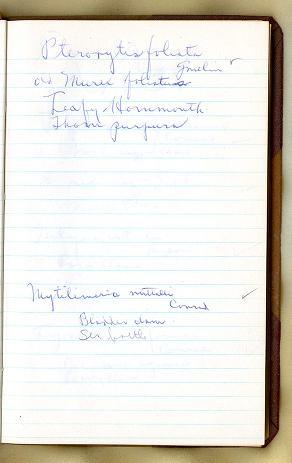 Pterorytis foliata
Gmelin
or Murex foliatus
Leafy Hornmouth
Thorn purpura
Mytilimeria nuttalli
Conrad
Bladder clam
Sea bottle